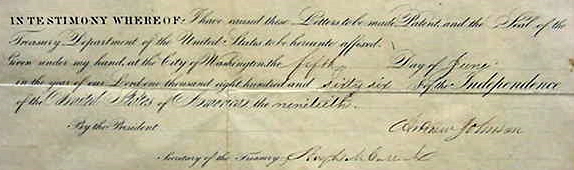 IN TESTIMONY WHEREOF: I have caused these Letters to be made Patent, and the Seal of the
Treasury Department of the United States to be hereunto affixed.
Given under my hand, at the City of Washington, the fifth Day of June
in the year of our Lord one thousand eight hundred and sixty six & of the Independence
of the United States of America the ninetieth.
By the President Andrew Johnson
Secretary of the Treasury. Hugh McCulloch